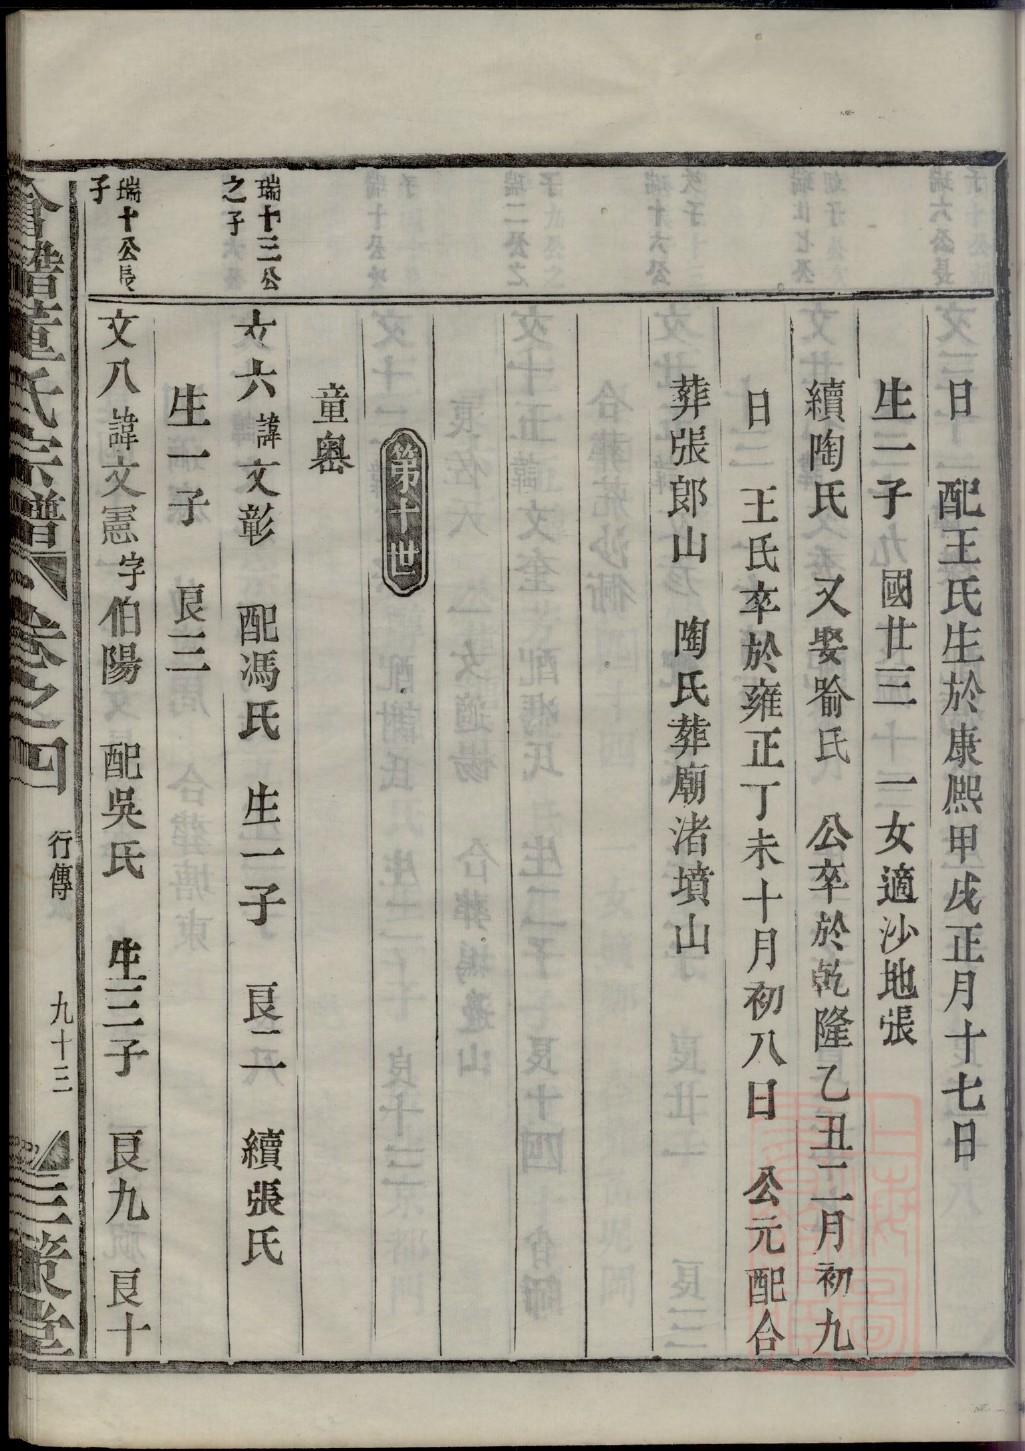 日　配王氏生於康熈甲戌正月十七日
生二子　國廿三　一女適沙地張
續陶氏　又娶喻氏　公卒於乾隆乙丑二月初九
日　王氏卒於雍正丁未十月初八日　公元配合
葬張郎山　陶氏葬廟渚墳山
第十世
童嶴
瑞十三公之子
文六諱文彰　配馮氏　生一子　良二　續張氏
生一子　良三
瑞十公長子
文八諱文憲字伯陽　配吳氏　生三子　良九　良十
童氏宗譜　卷之四　行傳　九十三　三策堂